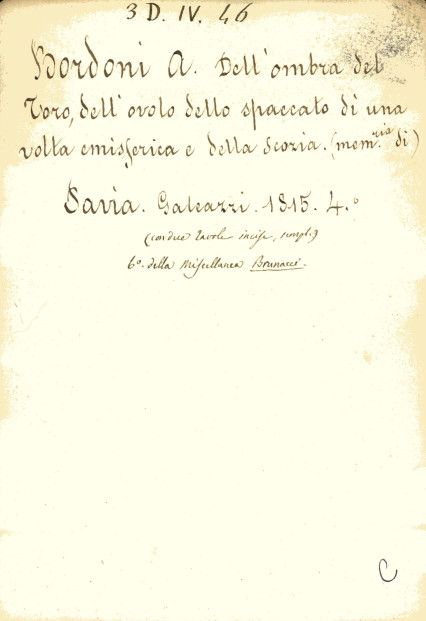 3 D. IV. 46
Bordoni A. Dell'ombra del
Toro, dell'ovolo dello spaccato di una
volta emisferica e della Scozia. (mem.ria di)
Pavia. Galeazzi. 1815. 4.°
(con due tavole incise, sempl.)
6°. della Miscellanea Brunacci.
C